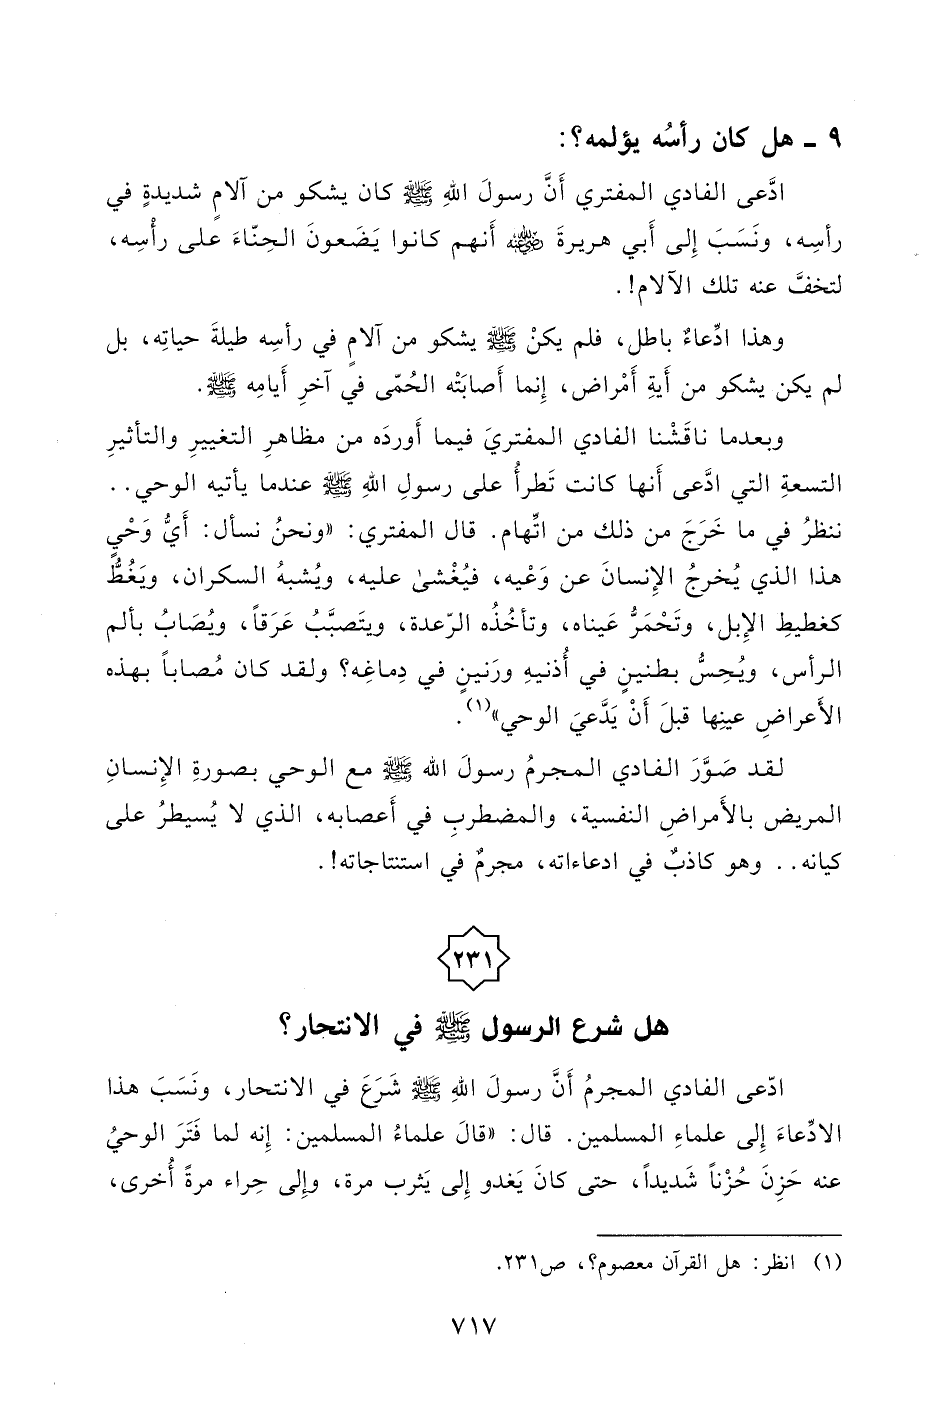 ٩ ـ هل كان رأسُه يؤلمه؟:
ادَّعى الفادي المفتري أَنَّ رسولَ اللهِ ﷺ كان يشكو من آلامٍ شديدةٍ في
رأسِه، ونَسَبَ إِلى أَبي هريرةَ رضي الله عنه أَنهم كانوا يَضَعونَ الحِنّاءَ على رأْسِه،
لتخفَّ عنه تلك الآلام!.
وهذا ادِّعاءٌ باطل، فلم يكنْ ﷺ يشكو من آلامٍ في رأسِه طيلةَ حياتِه، بل
لم يكن يشكو من أَيةِ أَمْراض، إِنما أَصابَتْه الحُمّى في آخرِ أَيامِه ﷺ.
وبعدما ناقَشْنا الفادي المفتريَ فيما أَوردَه من مظاهرِ التغييرِ والتأثيرِ
التسعةِ التي ادَّعى أَنها كانت تَطرأُ على رسولِ اللهِ ﷺ عندما يأتيه الوحي..
ننظرُ في ما خَرَجَ من ذلك من اتِّهام. قال المفتري: «ونحنُ نسأل: أَيُّ وَحْيٍ
هذا الذي يُخرجُ الإِنسانَ عن وَعْيه، فيُغْشىٰ عليه، ويُشبهُ السكران، ويَغُطُّ
كغطيطِ الإِبل، وتَحْمَرُّ عيناه، وتأخُذُه الرّعدة، ويتَصبَّبُ عَرَقاً، ويُصَابُ بألم
الرأس، ويُحِسُّ بطنينٍ في أُذنيهِ ورَنينٍ في دِماغِه؟ ولقد كان مُصاباً بهذه
الأَعراضِ عينِها قبلَ أَنْ يَدَّعيَ الوحي»(١).
لقد صَوَّرَ الفادي المجرمُ رسولَ الله ﷺ مع الوحي بصورةِ الإِنسانِ
المريض بالأَمراضِ النفسية، والمضطربِ في أَعصابه، الذي لا يُسيطرُ على
كيانه.. وهو كاذبٌ في ادعاءاته، مجرمٌ في استنتاجاته!.
٢٣١
هل شرع الرسول ﷺ في الانتحار؟
ادّعى الفادي المجرمُ أَنَّ رسولَ اللهِ ﷺ شَرَعَ في الانتحار، ونَسَبَ هذا
الادِّعاءَ إِلى علماءِ المسلمين. قال: «قالَ علماءُ المسلمين: إِنه لما فَتَرَ الوحيُ
عنه حَزِنَ حُزْناً شديداً، حتى كانَ يَغدو إِلى يَثرب مرة، وإِلى حِراء مرةً أُخرى،
(١) انظر: هل القرآن معصوم؟، ص٢٣١.
٧١٧